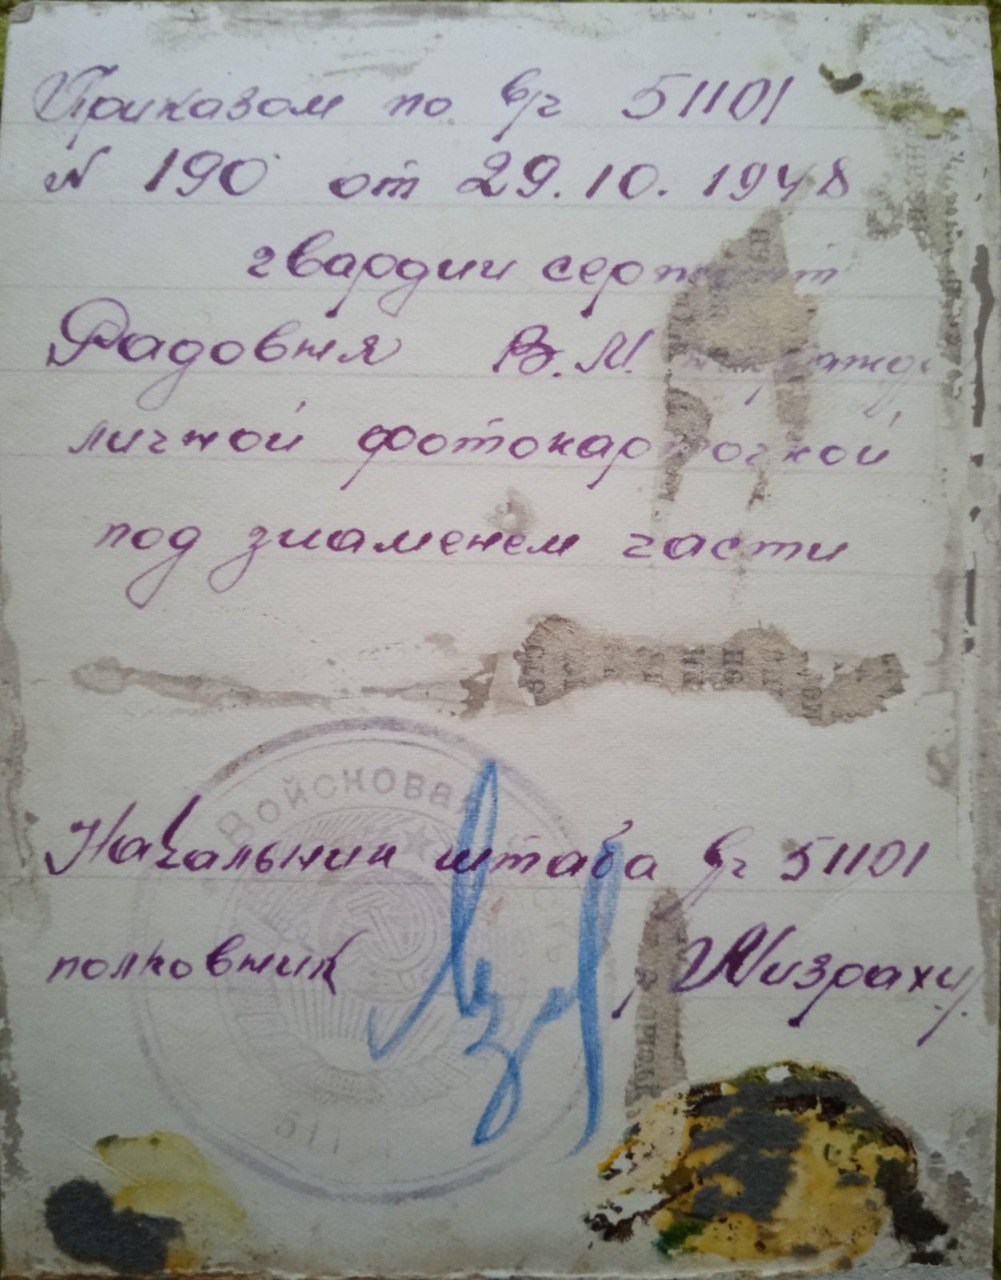 Приказом по в/ч 51101
№ 190 от 29.10.1948
гвардии сержант
Радовня В.М.
личной фотокарточкой
под знаменем части
Войсковая
Начальник штаба в/ч 51101
полковник Мизрахи